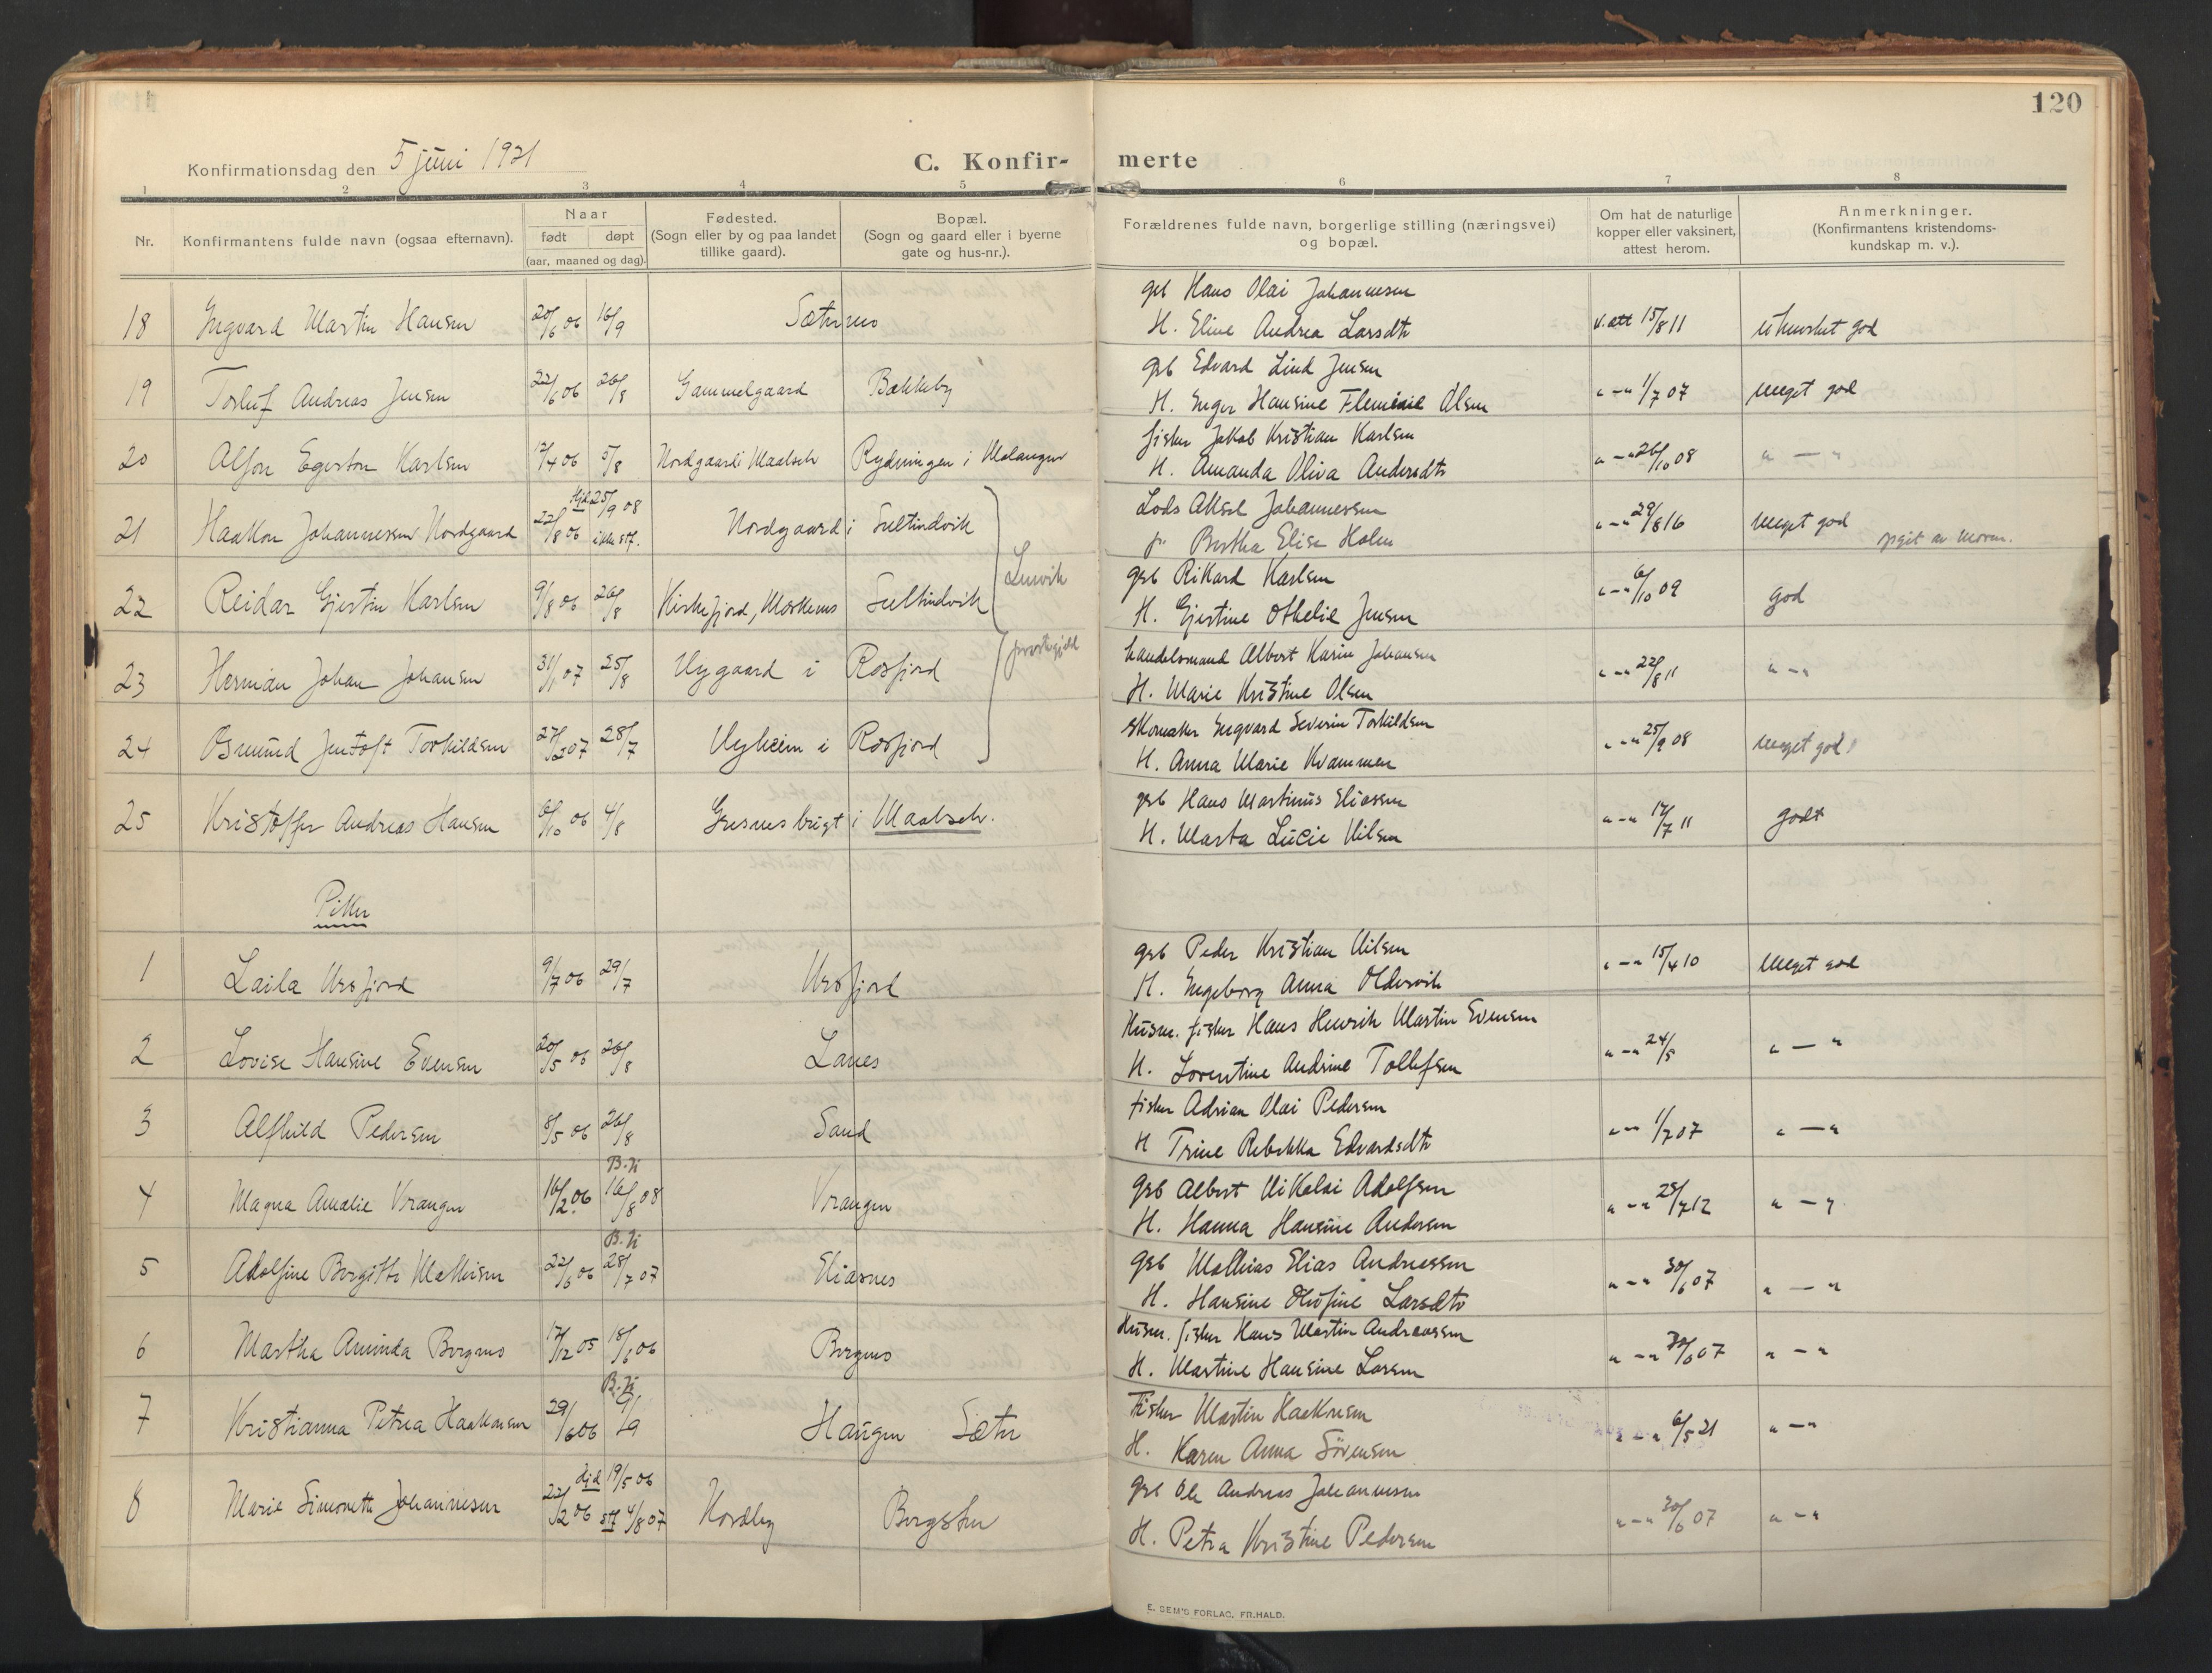 120
Konfirmationsdag den 5 juni 1921
C. Konfir- merte
1 2 3 4 5 6 7 8
Nr.
Konfirmantens fulde navn (ogsaa efternavn).
Naar
født døpt
(aar, maaned og dag).
Fødested.
(Sogn eller by og paa landet
tillike gaard).
Bopæl.
(Sogn og gaard eller i byerne
gate og hus-nr.).
Forældrenes fulde navn, borgerlige stilling (næringsvei)
og bopæl.
Om hat de naturlige
kopper eller vaksinert,
attest herom.
Anmerkninger.
(Konfirmantens kristendoms-
kundskap m. v.).
grb Hans Olai Johannesen
18 Ingvard Martin Hansen 20/6 06 16/9 H. Eline Andrea Larsdtr v. att 15/8 11 utmerket god
grb Edvard Lind Jensen
19 Torluf Andreas Jensen 22/6 06 26/8 Gammelgaard Bakkeby H. Inger Hansine Flemine Olsen " - " 1/7 07 meget god
fisker Jakob Kristian Karlsen
20 Alfon Egerton Karlsen 17/4 06 5/8 Nordgaard i Maalselv Rydningen i Malangen H. Amanda Oliva Andersdtr " - " 26/10 08 " — "
Hjd 25/9 08 Lods Aksel Johannessen
21 Haakon Johannessen Nordgaard 22/8 06 ikke stf. Nordgaard i Sultindvik Bertha Elise Holm " - " 29/8 16 meget god
grb Rikard Karlsen
22 Reidar Gjertin Karlsen 9/8 06 26/8 Kirkefjord, Moskenes Sultindvik Lenvik H. Gjertine Othelie Jensen " - " 6/10 09 god
handelsmand Albert Karin Johansen
23 Herman Johan Johansen 31/1 07 25/8 Nygaard i Rosfjord prestegjeld H. Marie Kristine Olsen " - " 22/8 11 " - "
skomaker Ingvard Severin Torkildsen
24 Osmund Jentoft Torkildsen 27/3 07 28/7 Nyheim i Rosfjord H. Anna Marie Kvammen " - " 25/9 08 meget god
grb Hans Martinus Eliassen
25 Kristoffer Andreas Hansen 6/10 06 4/8 i Maalselv. H. Marta Lucie Nilsen " - " 17/7 11 godt
Piker
grb Peder Kristian Nilsen
1 Laila Ursfjord 9/7 06 29/7 Ursfjord H. Ingeborg Anna Oldervik " - " 15/4 10 meget god
Husm. fisker Hans Henrik Martin Evensen
2 Lovise Hansine Evensen 20/5 06 26/8 Lanes H. Lorentine Andrine Tollefsen " - " 24/5 " — "
fisker Adrian Olai Pedersen
3 Alfhild Pedersen 8/5 06 26/8 Sand H Trine Rebekka Edvardsdtr " - " 1/7 07 " — "
B. Ti grb Albert Nikolai Adolfsen
4 Magna Amalie Vrangen 16/2 06 16/8 08 Vrangen H. Hanna Hansine Andersen " - " 25/7 12 " - "
B. Ti grb Mathias Elias Andreassen
5 Adolfine Birgitte Mathisen 22/6 06 28/7 07 Eliasnes H. Hansine Olufine Larsdtr " - " 30/6 07 " — "
Husm. fisker Hans Martin Andreassen
6 Martha Aminda Bergmo 17/12 05 18/6 06 Bergmo H. Martine Hansine Larsen " - " 30/6 07 " - "
B. Ti Fisker Martin Haakonsen
7 Kristianna Petrea Haakonsen 29/6 06 9/9 Haugen Sætr H. Karen Anna Sörensen " - " 6/5 21 " - "
djd 19/5 06 grb Ole Andreas Johannesen
8 Marie Simonette Johannesen 22/2 06 stf 4/8 07 Nordby H. Petra Kristine Pedersen " - " 30/6 07 " - "
E. SEM'S FORLAG, FR.HALD.